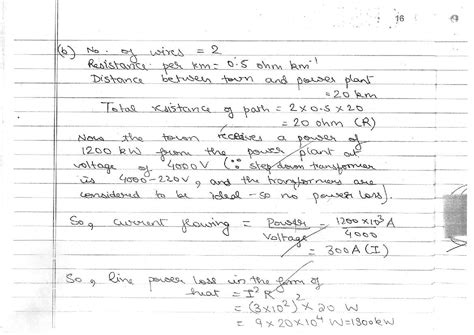 16
(b) No. of wires = 2
Resistance per km = 0.5 ohm km⁻¹
Distance between town and power plant
= 20 km
Total resistance of path = 2×0.5×20
= 20 ohm (R)
Now the town receives a power of
1200 kW from the power plant at
voltage of 4000V (∵ step down transformer
is 4000-220V, and the transformers are
considered to be ideal - so no power loss).
So, current flowing = Power / Voltage = 1200×10³ / 4000 A
= 300A (I)
So, line power loss in the form of
heat = I²R
= (3×10²)² × 20 W
= 9×20×10⁴ W = 1800kW